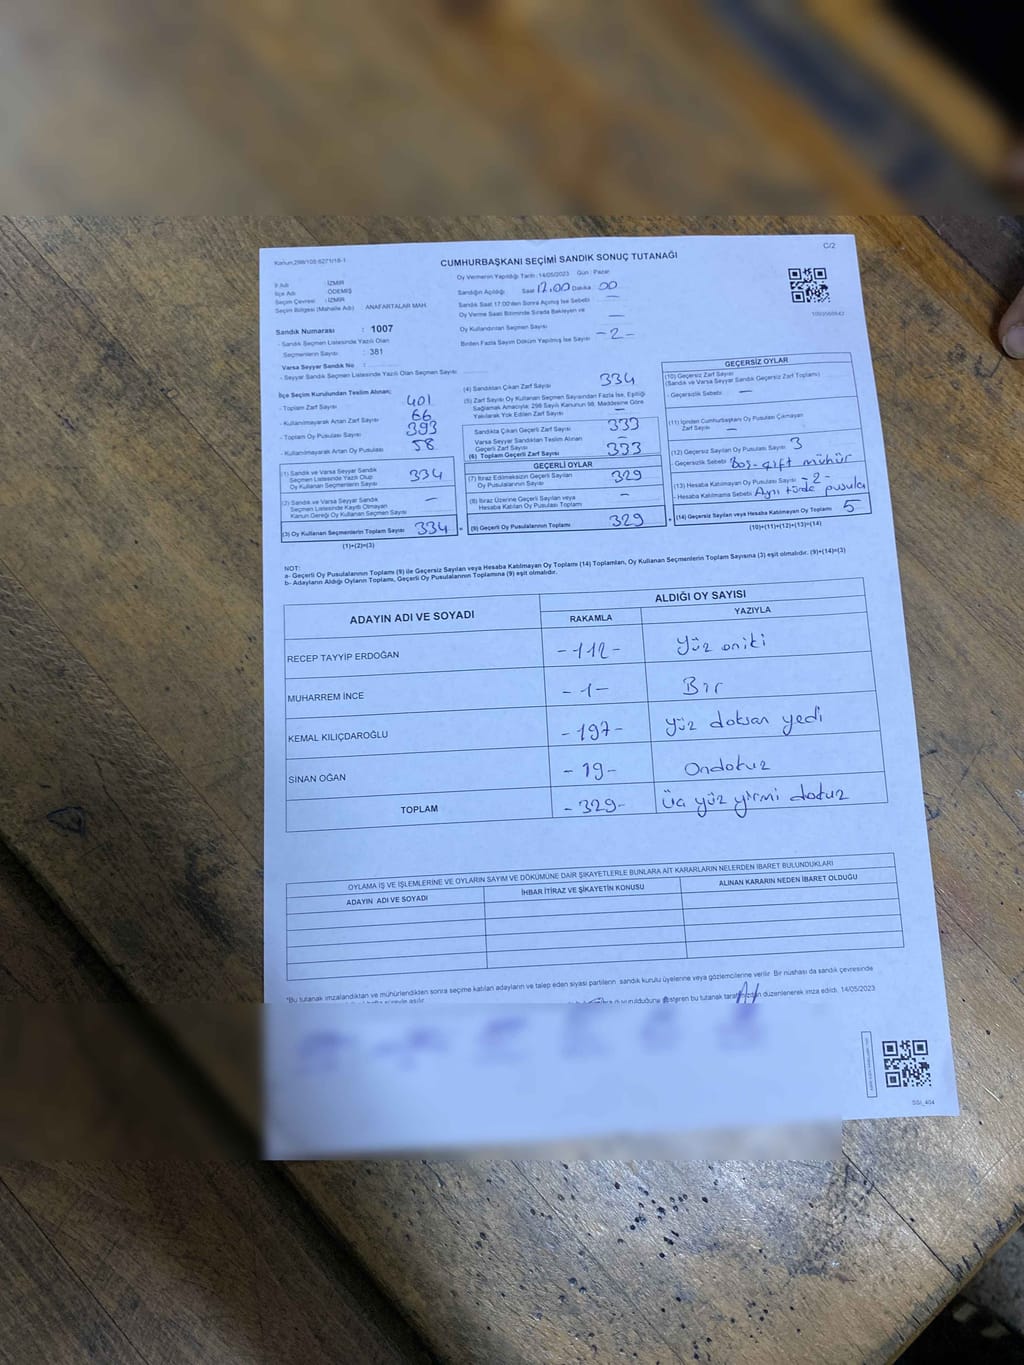 Kanun:298/105-6271/18-1
C/2
CUMHURBAŞKANI SEÇİMİ SANDIK SONUÇ TUTANAĞI
İl Adı : İZMİR
İlçe Adı : ÖDEMİŞ
Seçim Çevresi : İZMİR
Seçim Bölgesi (Mahalle Adı) : ANAFARTALAR MAH.
Sandık Numarası : 1007
- Sandık Seçmen Listesinde Yazılı Olan
Seçmenlerin Sayısı : 381
Varsa Seyyar Sandık No :
- Seyyar Sandık Seçmen Listesinde Yazılı Olan Seçmen Sayısı
Oy Vermenin Yapıldığı Tarih : 14/05/2023 Gün : Pazar
Sandığın Açıldığı Saat 17.00 Dakika 00
Sandık Saat 17:00'den Sonra Açılmış İse Sebebi —
Oy Verme Saati Bitiminde Sırada Bekleyen ve
Oy Kullandırılan Seçmen Sayısı —
Birden Fazla Sayım Döküm Yapılmış İse Sayısı - 2 -
İlçe Seçim Kurulundan Teslim Alınan;
- Toplam Zarf Sayısı 401
- Kullanılmayarak Artan Zarf Sayısı 66
- Toplam Oy Pusulası Sayısı 393
- Kullanılmayarak Artan Oy Pusulası Sayısı 58
(1) Sandık ve Varsa Seyyar Sandık
Seçmen Listesinde Yazılı Olup
Oy Kullanan Seçmenlerin Sayısı 334
(2) Sandık ve Varsa Seyyar Sandık
Seçmen Listesinde Kayıtlı Olmayan
Kanun Gereği Oy Kullanan Seçmen Sayısı —
(3) Oy Kullanan Seçmenlerin Toplam Sayısı 334
(1)+(2)=(3)
(4) Sandıktan Çıkan Zarf Sayısı 334
(5) Zarf Sayısı Oy Kullanan Seçmen Sayısından Fazla İse, Eşitliği
Sağlamak Amacıyla; 298 Sayılı Kanunun 98. Maddesine Göre
Yakılarak Yok Edilen Zarf Sayısı —
Sandıkta Çıkan Geçerli Zarf Sayısı 333
Varsa Seyyar Sandıktan Teslim Alınan
Geçerli Zarf Sayısı —
(6) Toplam Geçerli Zarf Sayısı 333
GEÇERLİ OYLAR
(7) İtiraz Edilmeksizin Geçerli Sayılan
Oy Pusulasının Sayısı 329
(8) İtiraz Üzerine Geçerli Sayılan veya
Hesaba Katılan Oy Pusulası Toplam —
(9) Geçerli Oy Pusulalarının Toplamı 329
GEÇERSİZ OYLAR
(10) Geçersiz Zarf Sayısı
(Sandık ve Varsa Seyyar Sandık Geçersiz Zarf Toplamı)
- Geçersizlik Sebebi —
(11) İçinden Cumhurbaşkanı Oy Pusulası Çıkmayan
Zarf Sayısı —
(12) Geçersiz Sayılan Oy Pusulası Sayısı 3
- Geçersizlik Sebebi Boş - çift mühür
(13) Hesaba Katılmayan Oy Pusulası Sayısı - 2 -
- Hesaba Katılmama Sebebi Aynı türde pusula
(14) Geçersiz Sayılan veya Hesaba Katılmayan Oy Toplamı 5
(10)+(11)+(12)+(13)=(14)
NOT:
a- Geçerli Oy Pusulalarının Toplamı (9) ile Geçersiz Sayılan veya Hesaba Katılmayan Oy Toplamı (14) Toplamları, Oy Kullanan Seçmenlerin Toplam Sayısına (3) eşit olmalıdır. (9)+(14)=(3)
b- Adayların Aldığı Oyların Toplamı, Geçerli Oy Pusulalarının Toplamına (9) eşit olmalıdır.
ADAYIN ADI VE SOYADI
ALDIĞI OY SAYISI
RAKAMLA YAZIYLA
RECEP TAYYİP ERDOĞAN - 112 - Yüz oniki
MUHARREM İNCE - 1 - Bir
KEMAL KILIÇDAROĞLU - 197 - Yüz doksan yedi
SİNAN OĞAN - 19 - Ondokuz
TOPLAM - 329 - Üç yüz yirmi dokuz
OYLAMA İŞ VE İŞLEMLERİNE VE OYLARIN SAYIM VE DÖKÜMÜNE DAİR ŞİKAYETLERLE BUNLARA AİT KARARLARIN NELERDEN İBARET BULUNDUKLARI
ADAYIN ADI VE SOYADI İHBAR İTİRAZ VE ŞİKAYETİN KONUSU ALINAN KARARIN NEDEN İBARET OLDUĞU
*Bu tutanak imzalandıktan ve mühürlendikten sonra seçime katılan adayların ve talep eden siyasi partilerin sandık kurulu üyelerine veya gözlemcilerine verilir. Bir nüshası da sandık çevresinde
duyurulduğunu gösteren bu tutanak tarafımızdan düzenlenerek imza edildi. 14/05/2023
SSI_404